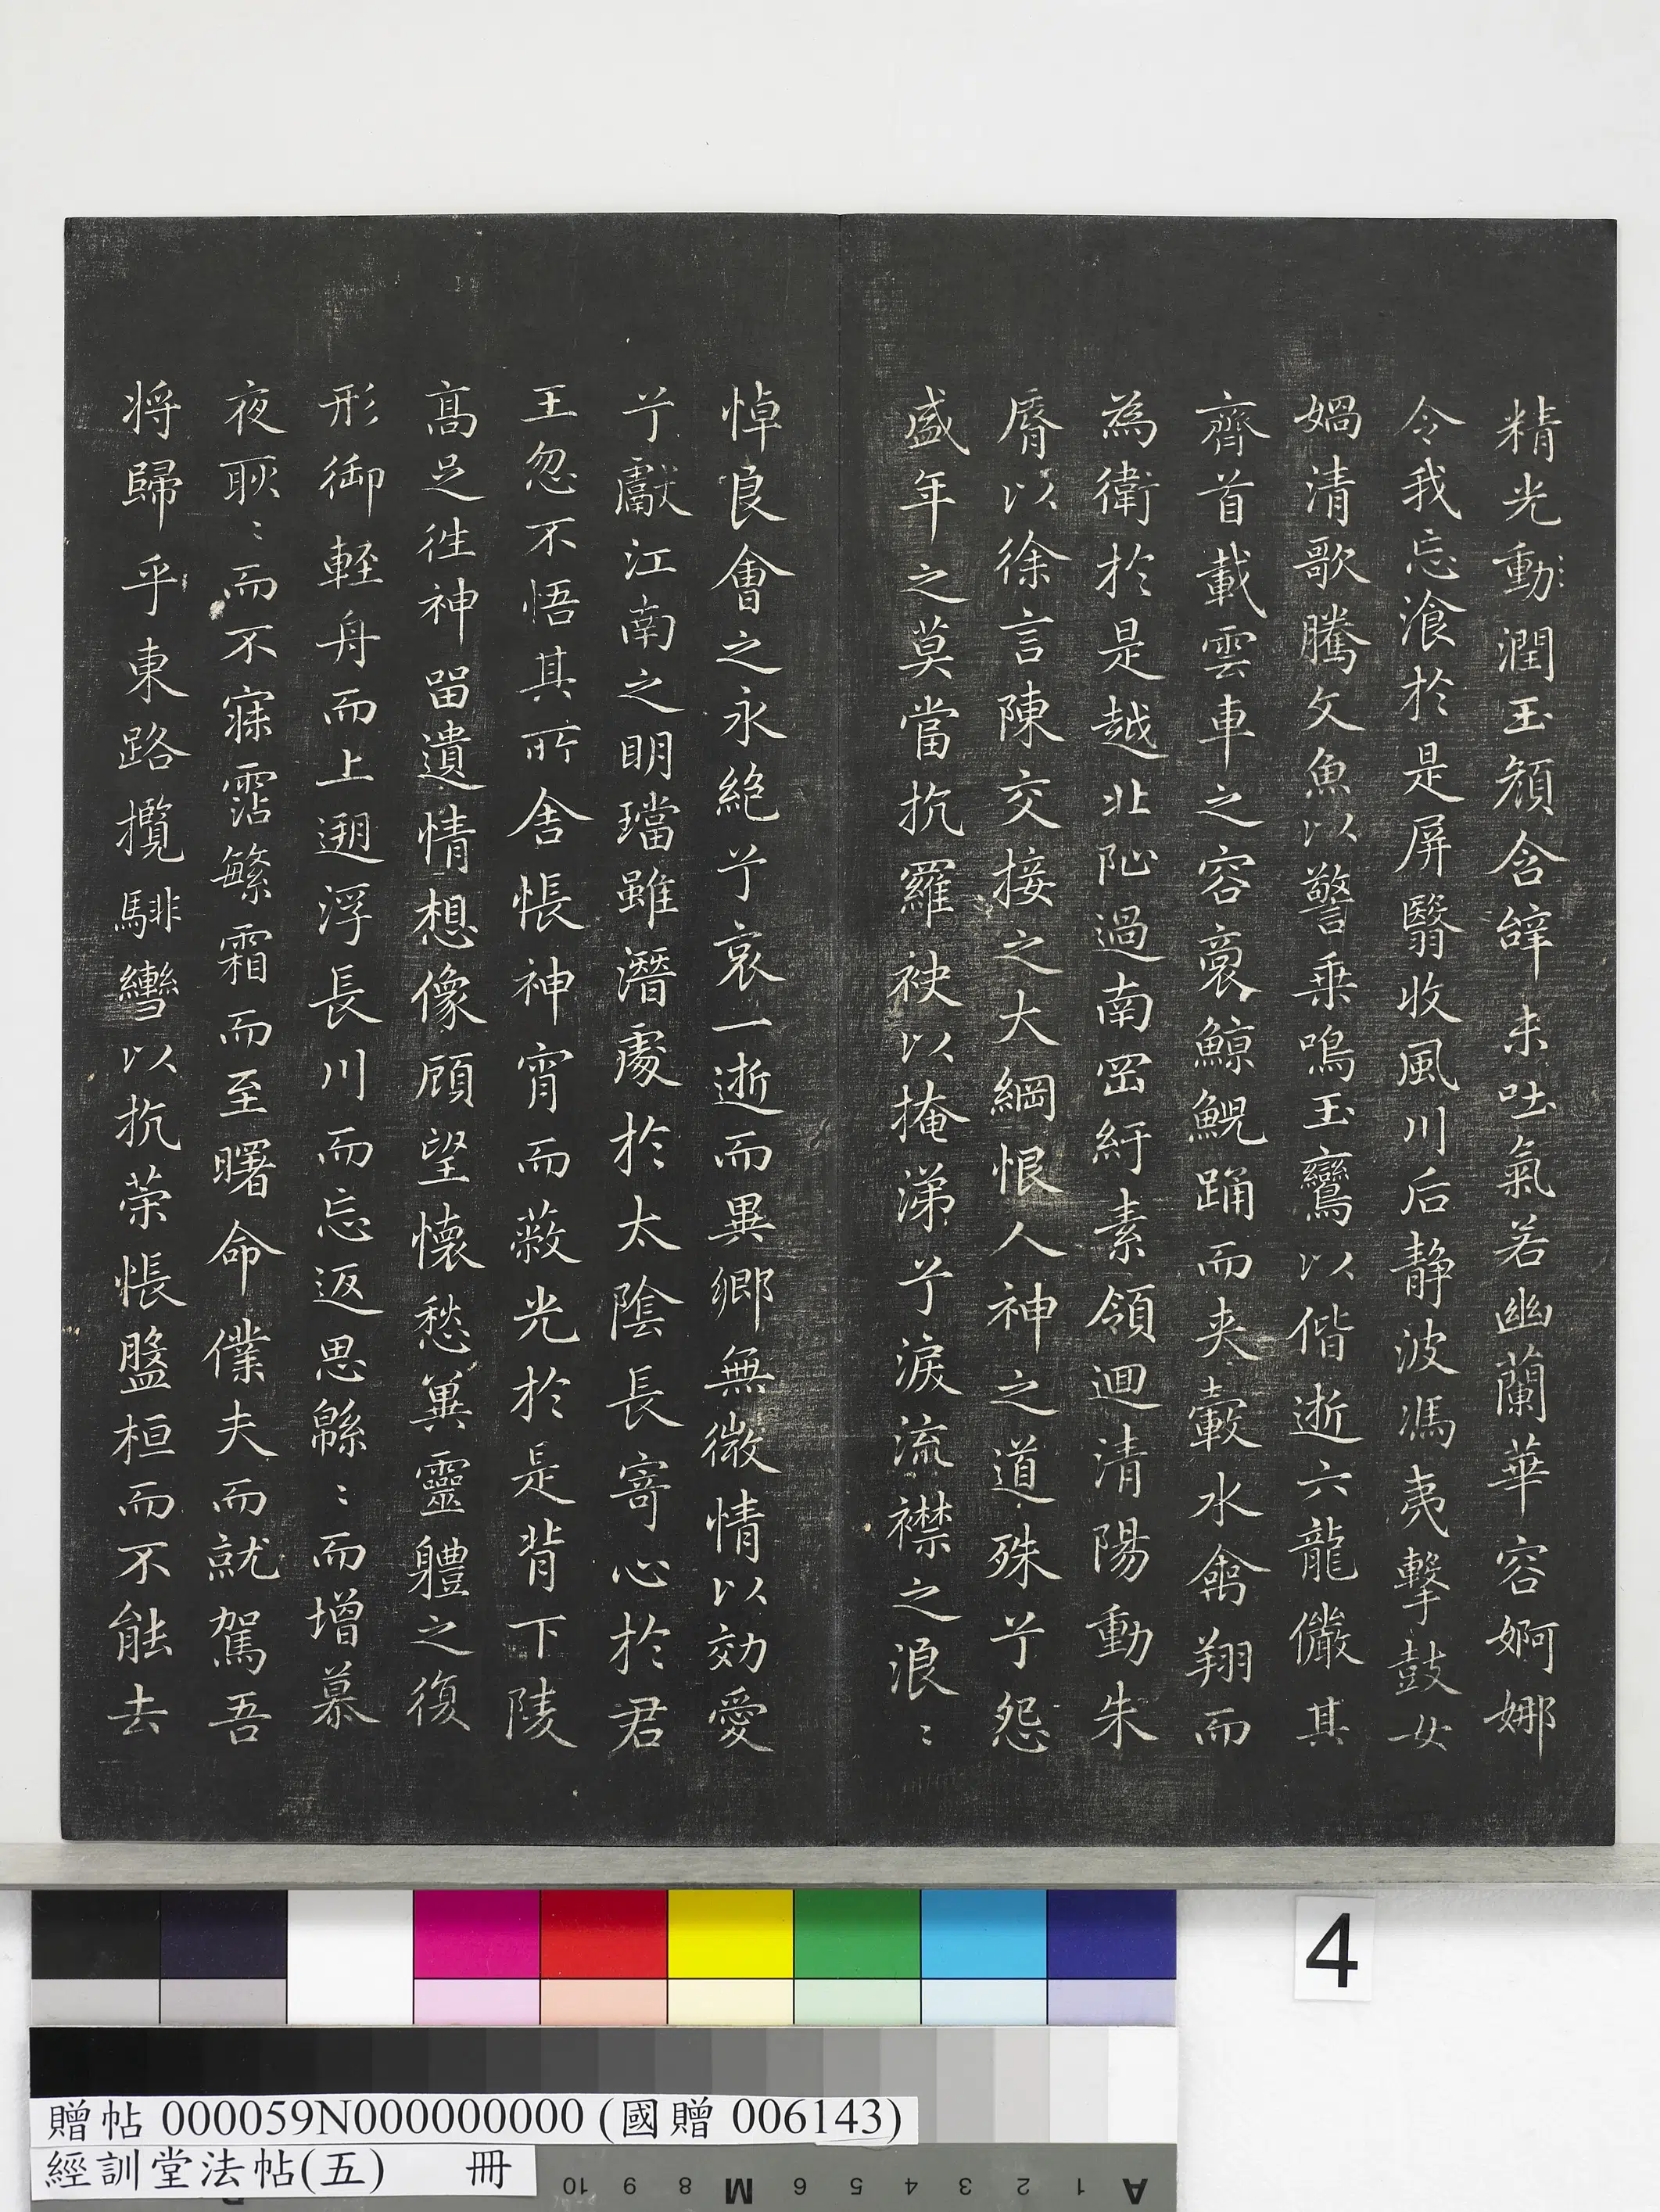 精光動潤玉顏含辭未吐氣若幽蘭華容婀娜
令我忘飡於是屏翳收風川后静波馮夷擊鼓女
媧清歌騰文魚以警乗鳴玉鸞以偕逝六龍儼其
齊首載雲車之容裔鯨鯢踊而夾轂水禽翔而
為衛於是越北沚過南岡紆素領迴清陽動朱
脣以徐言陳交接之大綱恨人神之道殊兮怨
盛年之莫當抗羅袂以掩涕兮淚流襟之浪〻
悼良會之永絶兮哀一逝而異鄉無微情以効愛
兮獻江南之明璫雖潛處於太陰長寄心於君
王忽不悟其所舍悵神宵而蔽光於是背下陵
髙足徃神留遺情想像顧望懷愁兾靈軆之復
形御輕舟而上遡浮長川而忘返思緜〻而增慕
夜耿〻而不寐霑繁霜而至曙命僕夫而就駕吾
将歸乎東路攬騑轡以抗策悵盤桓而不能去
4
贈帖 000059N000000000 (國贈 006143)
經訓堂法帖(五) 冊
10 9 8 M 6 5 4 3 2 1 A